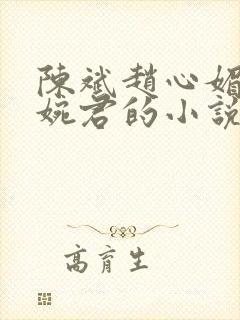 陳斌趙心媚
婉君的小說
高育生